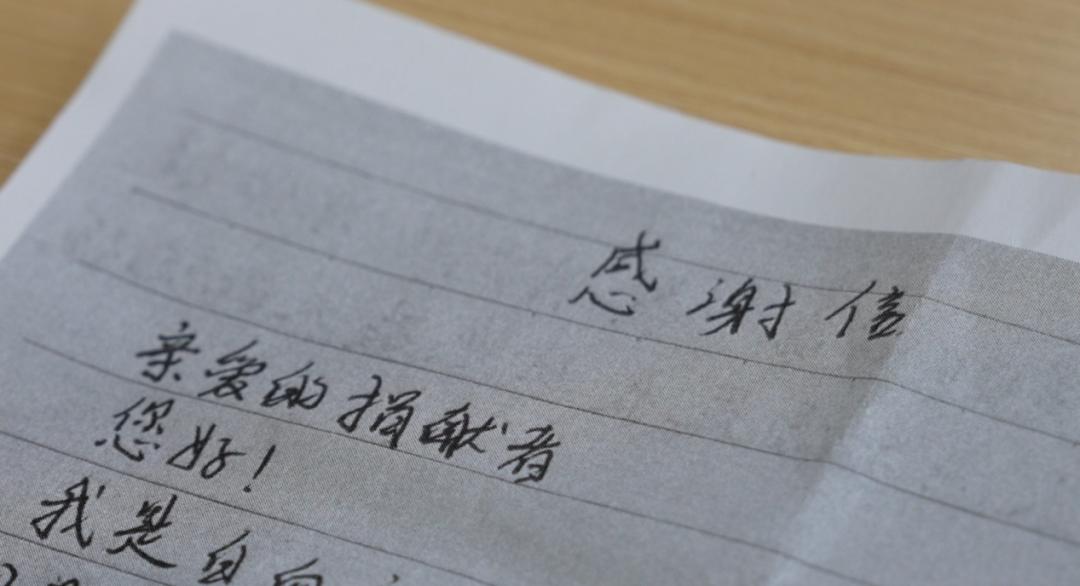 感谢信
亲爱的捐献者
您好!
我是